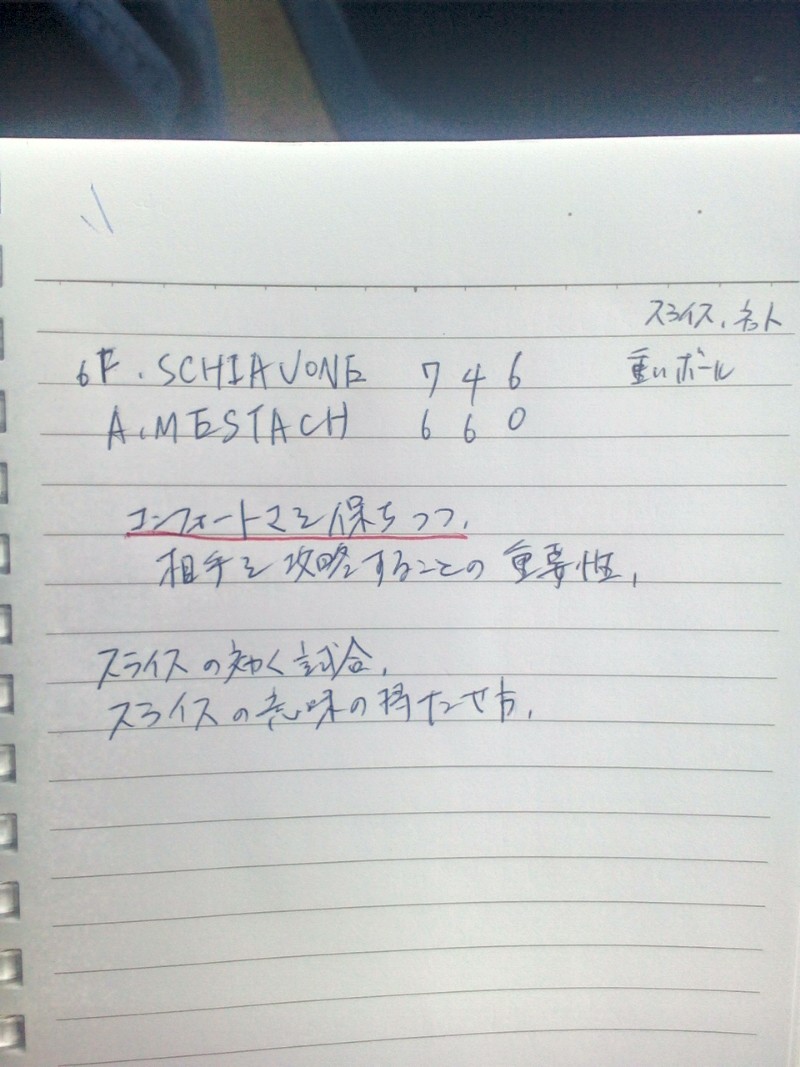 スライス、ネット
6 F. SCHIAVONE 7 4 6 重いボール
A. MESTACH 6 6 0
コンフォートさを保ちつつ、
相手を攻略することの重要性、
スライスの効く試合、
スライスの意味の持たせ方、